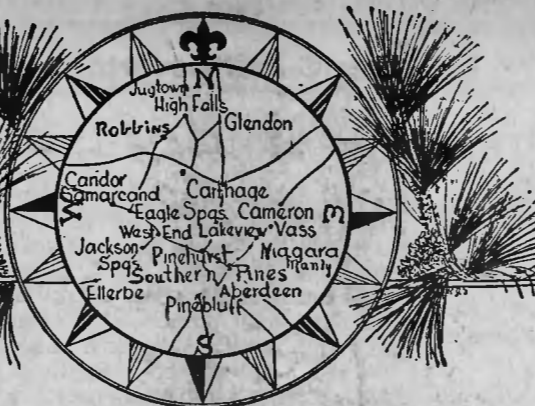 N
Jugtown
High Falls
Robbins Glendon
Candor Carthage
Samarcand
W Eagle Spgs. Cameron E
West End Lakeview Vass
Jackson Pinehurst Niagara
Spgs. Manly
Southern Pines
Ellerbe Aberdeen
Pinebluff
S